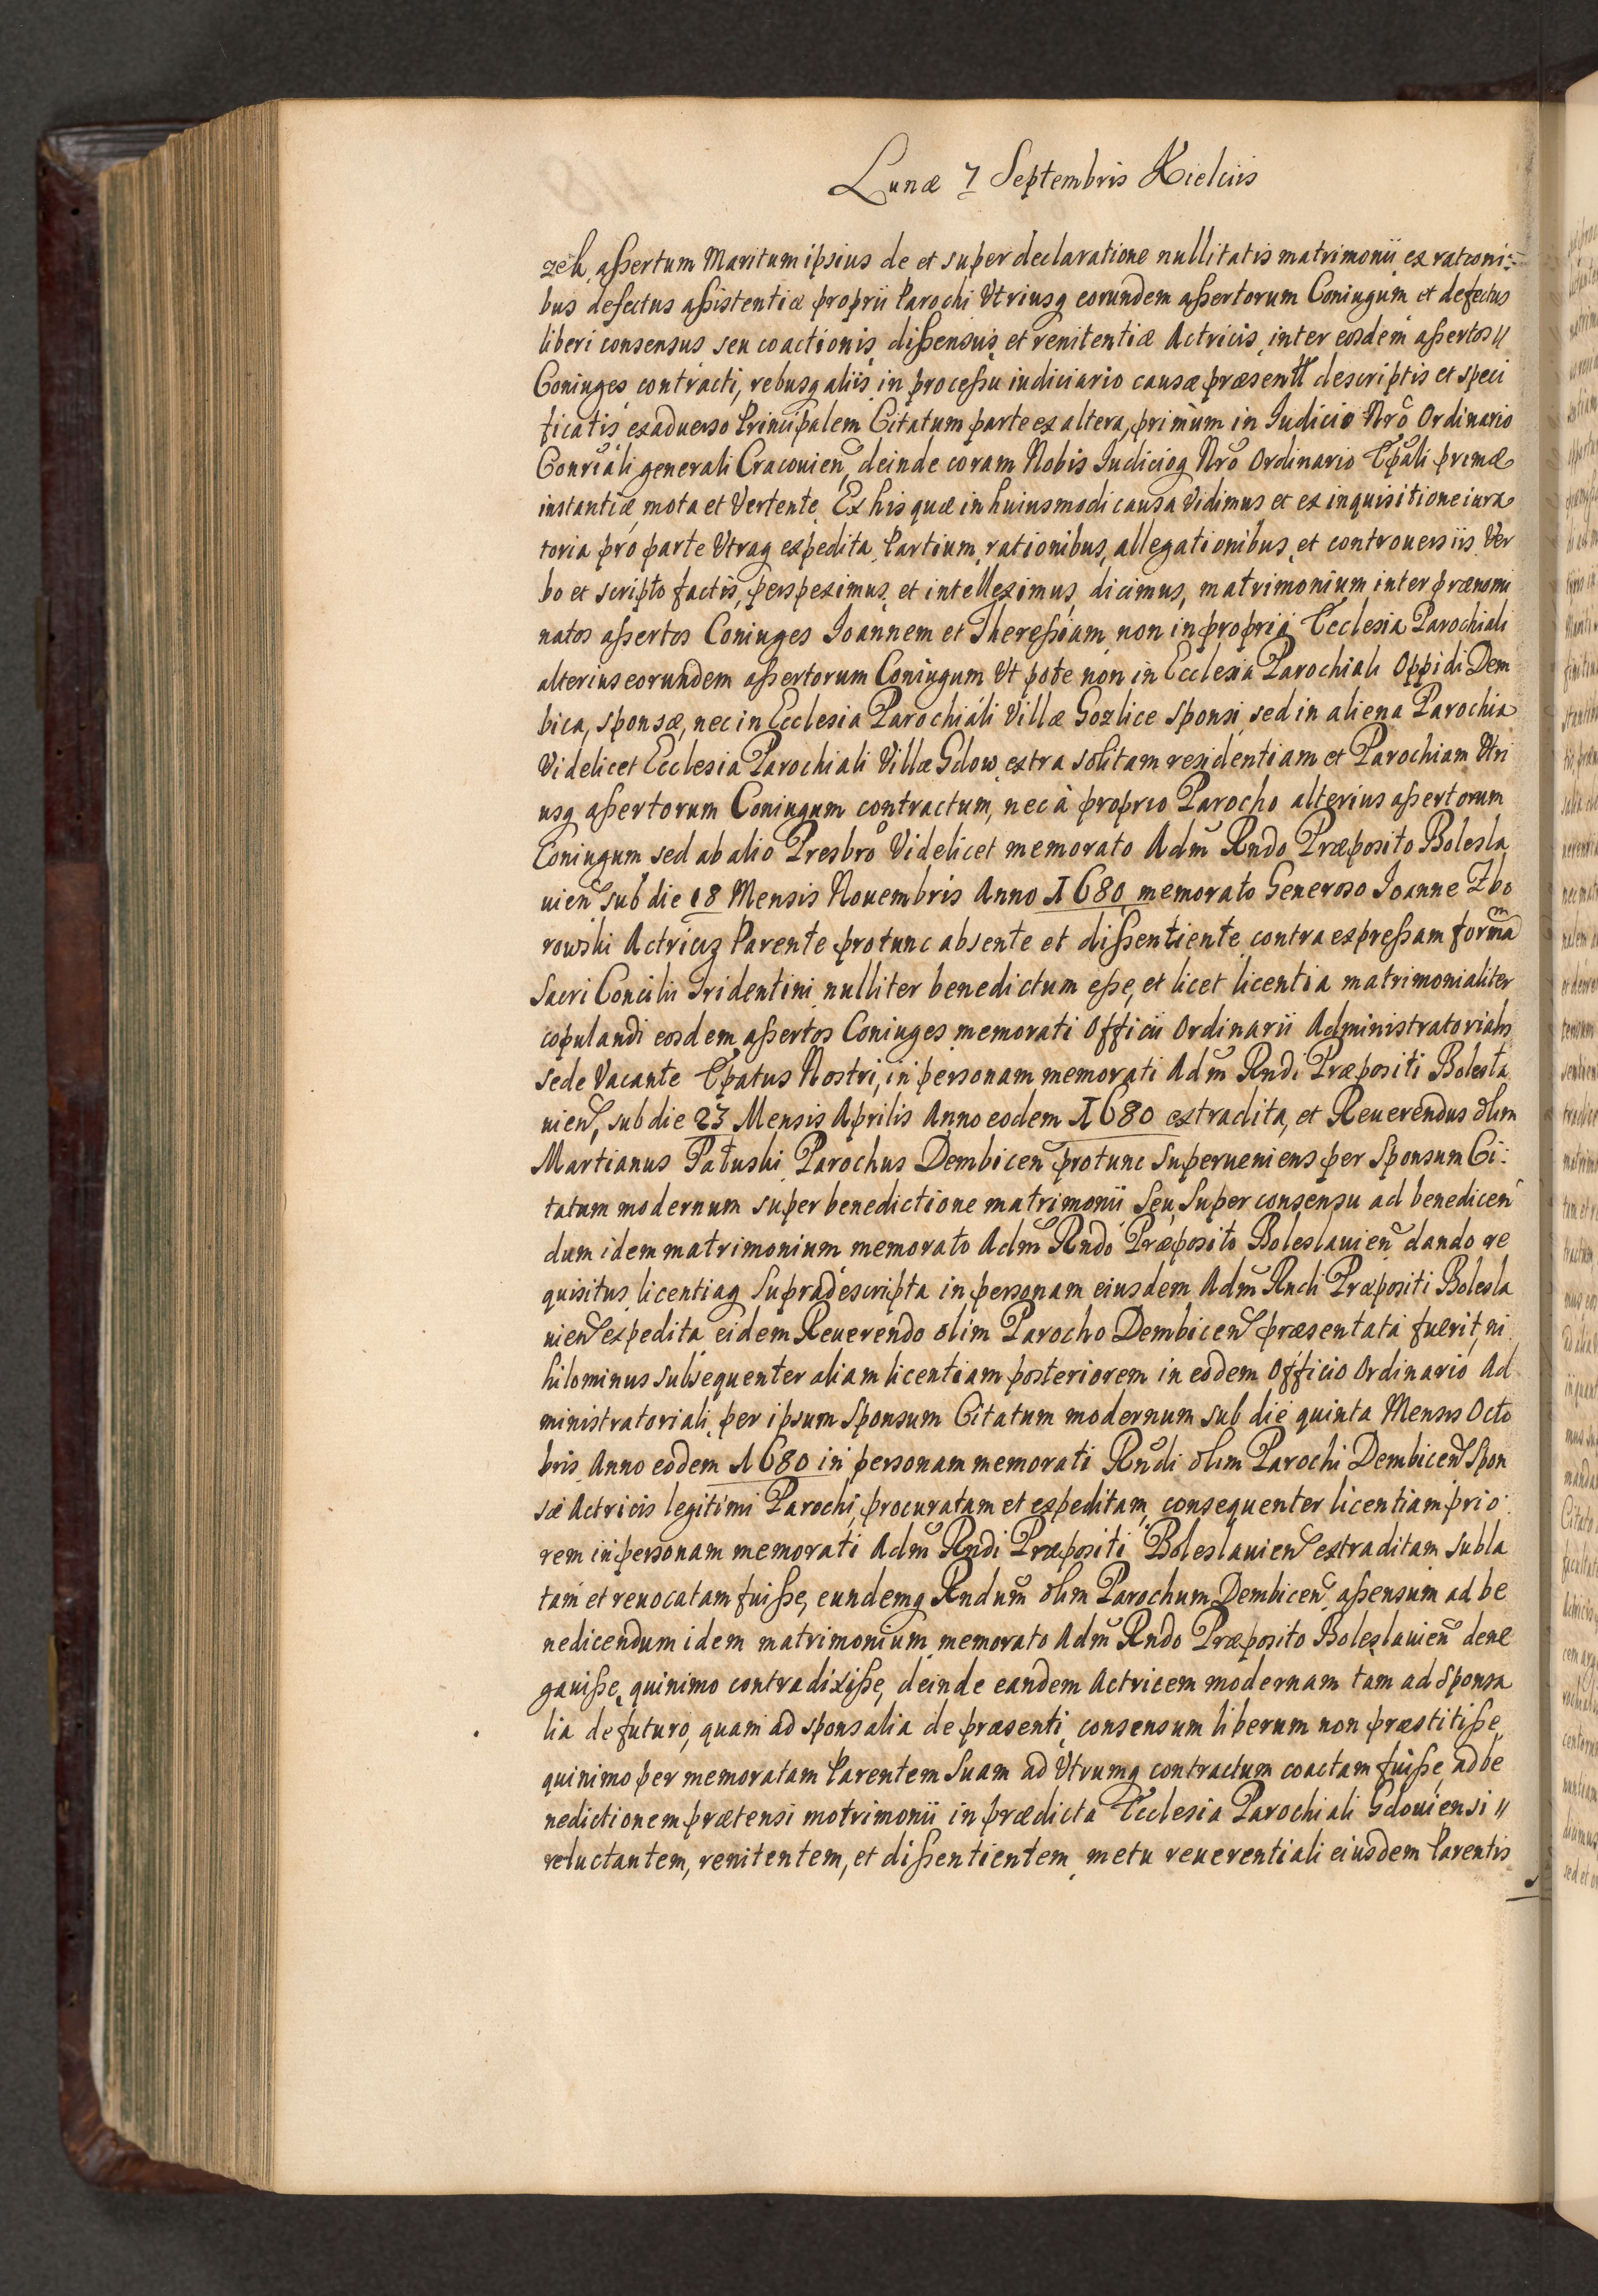 Lunæ 7 Septembris Kielciis
zek aßertum Maritum ipsius de et super declaratione nullitatis matrimonii ex rationi-
bus defectus aßistentiæ proprii Parochi Utriusq eorundem aßertorum Coniugum et defectus
liberi consensus seu coactionis, dißensus et renitentiæ Actricis inter eosdem aßertos //
Coniuges contracti, rebusq aliis in proceßu iudiciario causæ præsentt descriptis et speci
ficatis exaduerso Principalem Citatum parte ex altera, primùm in Iudicio Nrõ Ordinario
Consriali generali Cracouien, deinde coram Nobis Iudicioq Nrõ Ordinario Epali primæ
instantiæ, mota et Vertente. Ex his quæ in huiusmodi causa Vidimus et ex inquisitione iura
toria pro parte Utraq expedita Partium, rationibus, allegationibus, et controuersiis Ver
bo et scripto factis, perspeximus et intelleximus, dicimus, matrimonium inter prænomi
natos aßertos Coniuges Ioannem et Thereßiam non in propria Ecclesia Parochiali
alterius eorundem aßertorum Coniugum Ut pote non in Ecclesia Parochiali Oppidi Dem
bica, sponsæ, nec in Ecclesia Parochiali Villæ Gozlice Sponsi, sed in aliena Parochia
Videlicet Ecclesia Parochiali Villæ Gdow extra solitam residentiam et Parochiam Utri
usq aßertorum Coniugum contractum, nec à proprio Parocho alterius aßertorum
Coniugum sed ab alio Presbrõ Videlicet memorato Adm Rndo Præposito Bolesla
uien sub die 18 Mensis Nouembris Anno 1680 memorato Generoso Ioanne Zbo
rowski Actricis Parente protunc absente et dißentiente contra expreßam formam
Sacri Concilii Tridentini nulliter benedictum eße, et licet licentia matrimonialiter
copulandi eosdem aßertos Coniuges memorati Officii Ordinarii Administratorialis
sede Vacante Epatus Nostri, in personam memorati Adm Rndi Præpositi Bolesla
uien, sub die 23 Mensis Aprilis Anno eodem 1680 extradita, et Reuerendus olim
Martianus Patuski Parochus Dembicen protunc superueniens per Sponsum Ci-
tatum modernum super benedictione matrimonii seu super consensu ad benedicen
dum idem matrimonium memorato Adm Rndo Præposito Boleslauien dando re
quisitus, licentiaq supradescripta in personam eiusdem Adm Rndi Præpositi Bolesla
uien expedita eidem Reuerendo olim Parocho Dembicen præsentata fuerit, ni
hilominus subsequenter aliam licentiam posteriorem in eodem Officio Ordinario Ad
ministratoriali, per ipsum Sponsum Citatum modernum sub die quinta Mensis Octo
bris Anno eodem 1680 in personam memorati Rndi olim Parochi Dembicen Spon
sæ Actricis legitimi Parochi, procuratam et expeditam, consequenter licentiam prio
rem in personam memorati Adm Rndi Præpositi Boleslauien extraditam subla
tam et reuocatam fuiße, eundemq Rndum olim Parochum Dembicen aßensum ad be
nedicendum idem matrimonium memorato Adm Rndo Præposito Boleslauien dene
gauiße, quinimo contradixiße, deinde eandem Actricem modernam tam ad sponsa
lia de futuro, quam ad sponsalia de præsenti, consensum liberum non præstitiße,
quinimo per memoratam Parentem Suam ad Utrumq contractum coactam fuiße, ad be
nedictionem prætensi motrimonii in prædicta Ecclesia Parochiali Gdouiensi //
reluctantem, renitentem, et dißentientem, metu reuerentiali eiusdem Parentis